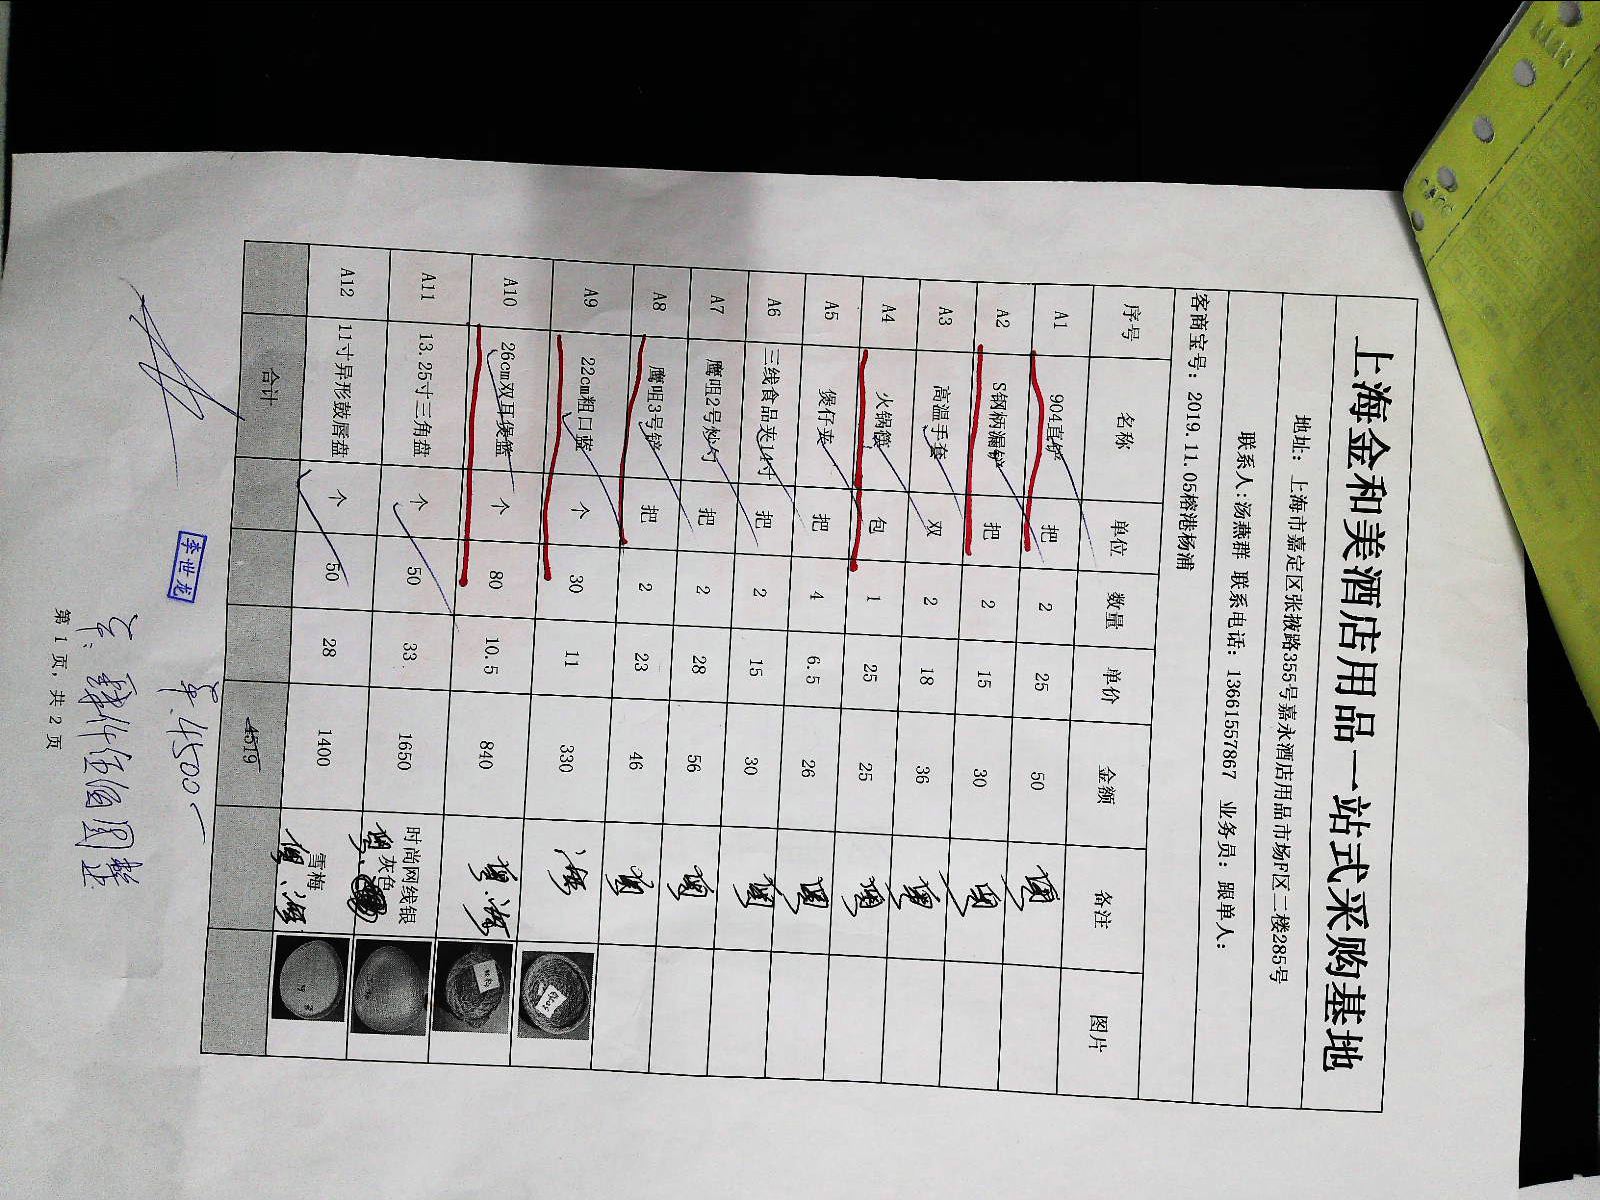 上海金和美酒店用品一站式采购基地
地址：上海市嘉定区张掖路355号嘉永酒店用品市场F区二楼285号
联系人:汤燕群 联系电话：13661557867 业务员：跟单人：
客商宝号：2019.11.05榕港杨浦
序号 名称 单位 数量 单价 金额 备注 图片
A1 904直铲 把 2 25 50
A2 S钢柄漏铲 把 2 15 30
A3 高温手套 双 2 18 36
A4 火锅筷 包 1 25 25
A5 煲仔夹 把 4 6.5 26
A6 三线食品夹14寸 把 2 15 30
A7 鹰咀2号炒勺 把 2 28 56
A8 鹰咀3号铲 把 2 23 46
A9 22cm粗口蓝 个 30 11 330
A10 26cm双耳煲篮 个 80 10.5 840
A11 13.25寸三角盘 个 50 33 1650 时尚网线银灰色
A12 11寸异形鼓唇盘 个 50 28 1400 雪梅
合计 4519
李世龙
4500
肆仟伍佰圆整
第 1 页，共 2 页